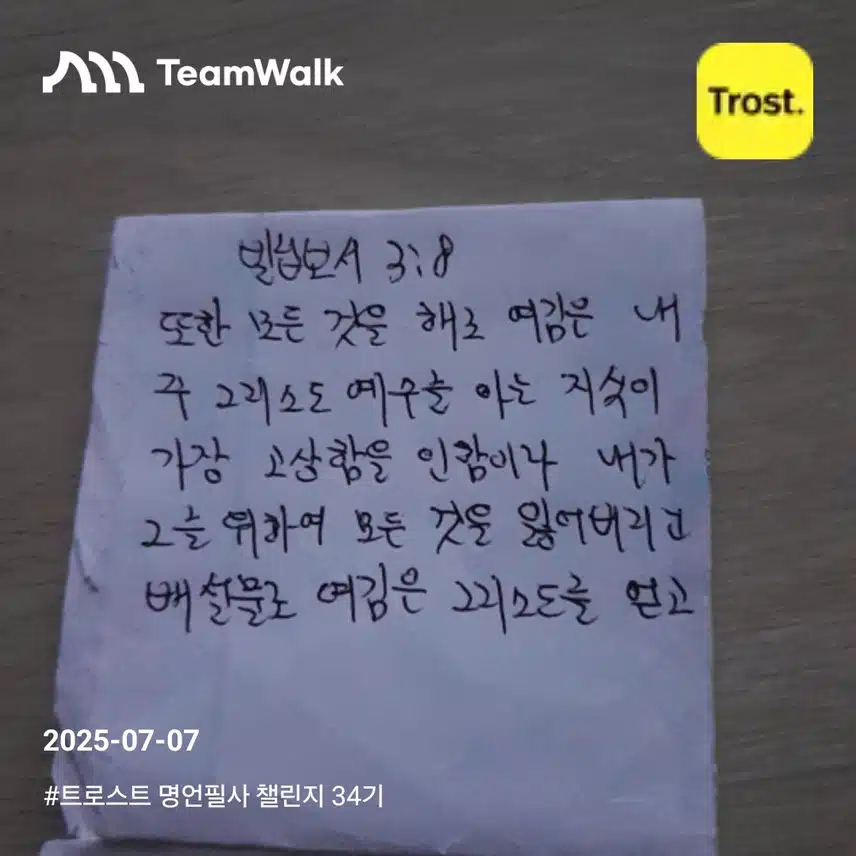 TeamWalk
Trost.
빌립보서 3:8
또한 모든 것을 해로 여김은 내
주 그리스도 예수를 아는 지식이
가장 고상함을 인함이라 내가
그를 위하여 모든 것을 잃어버리고
배설물로 여김은 그리스도를 얻고
2025-07-07
#트로스트 명언필사 챌린지 34기